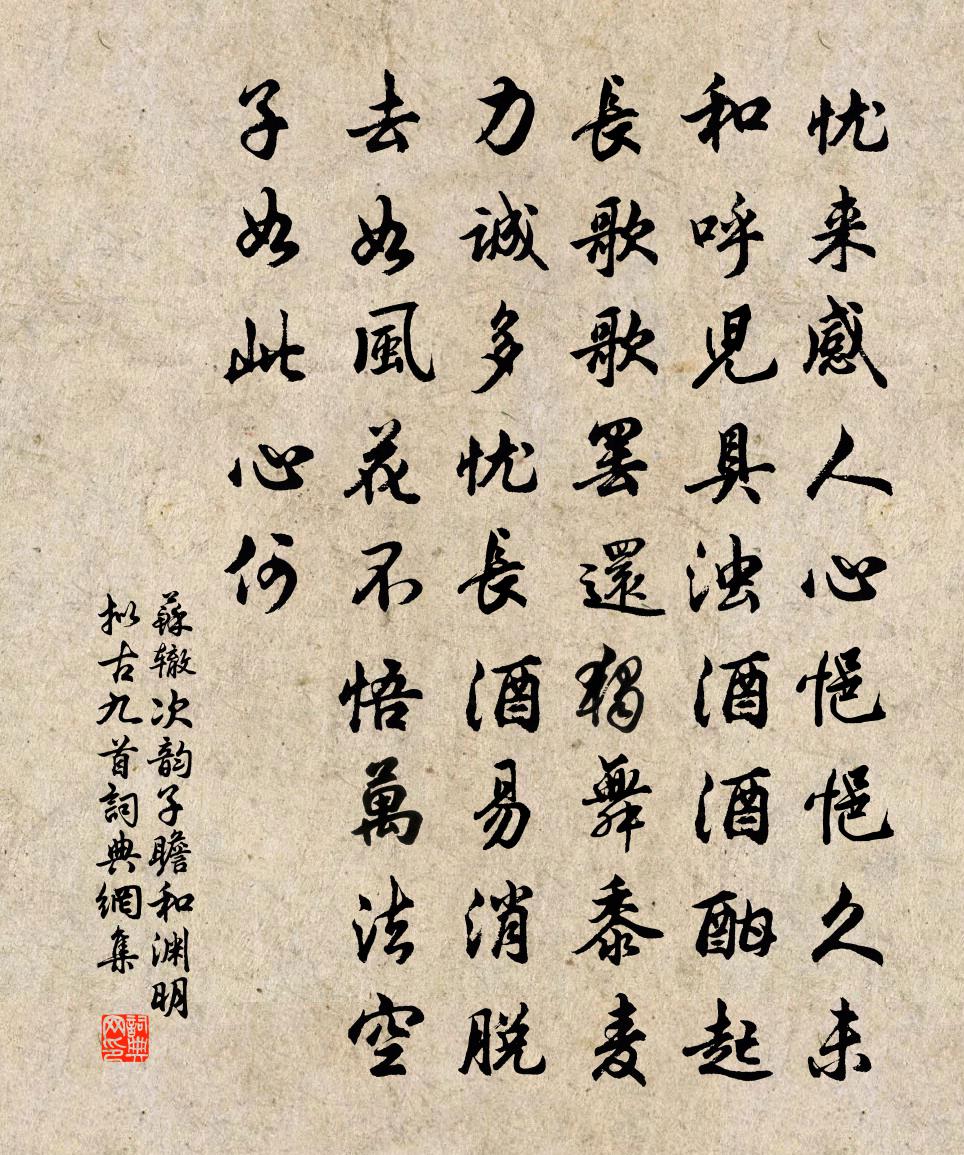 忧来感人心悒悒久未
和呼児具浊酒酒酣起
長歌歌罢還獨舞黍麦
力誠多忧長酒易消脱
去如風花不悟萬法空
子如此心何
蘇辙次韵子瞻和渊明
拟古九首詞典網集
詞典网印